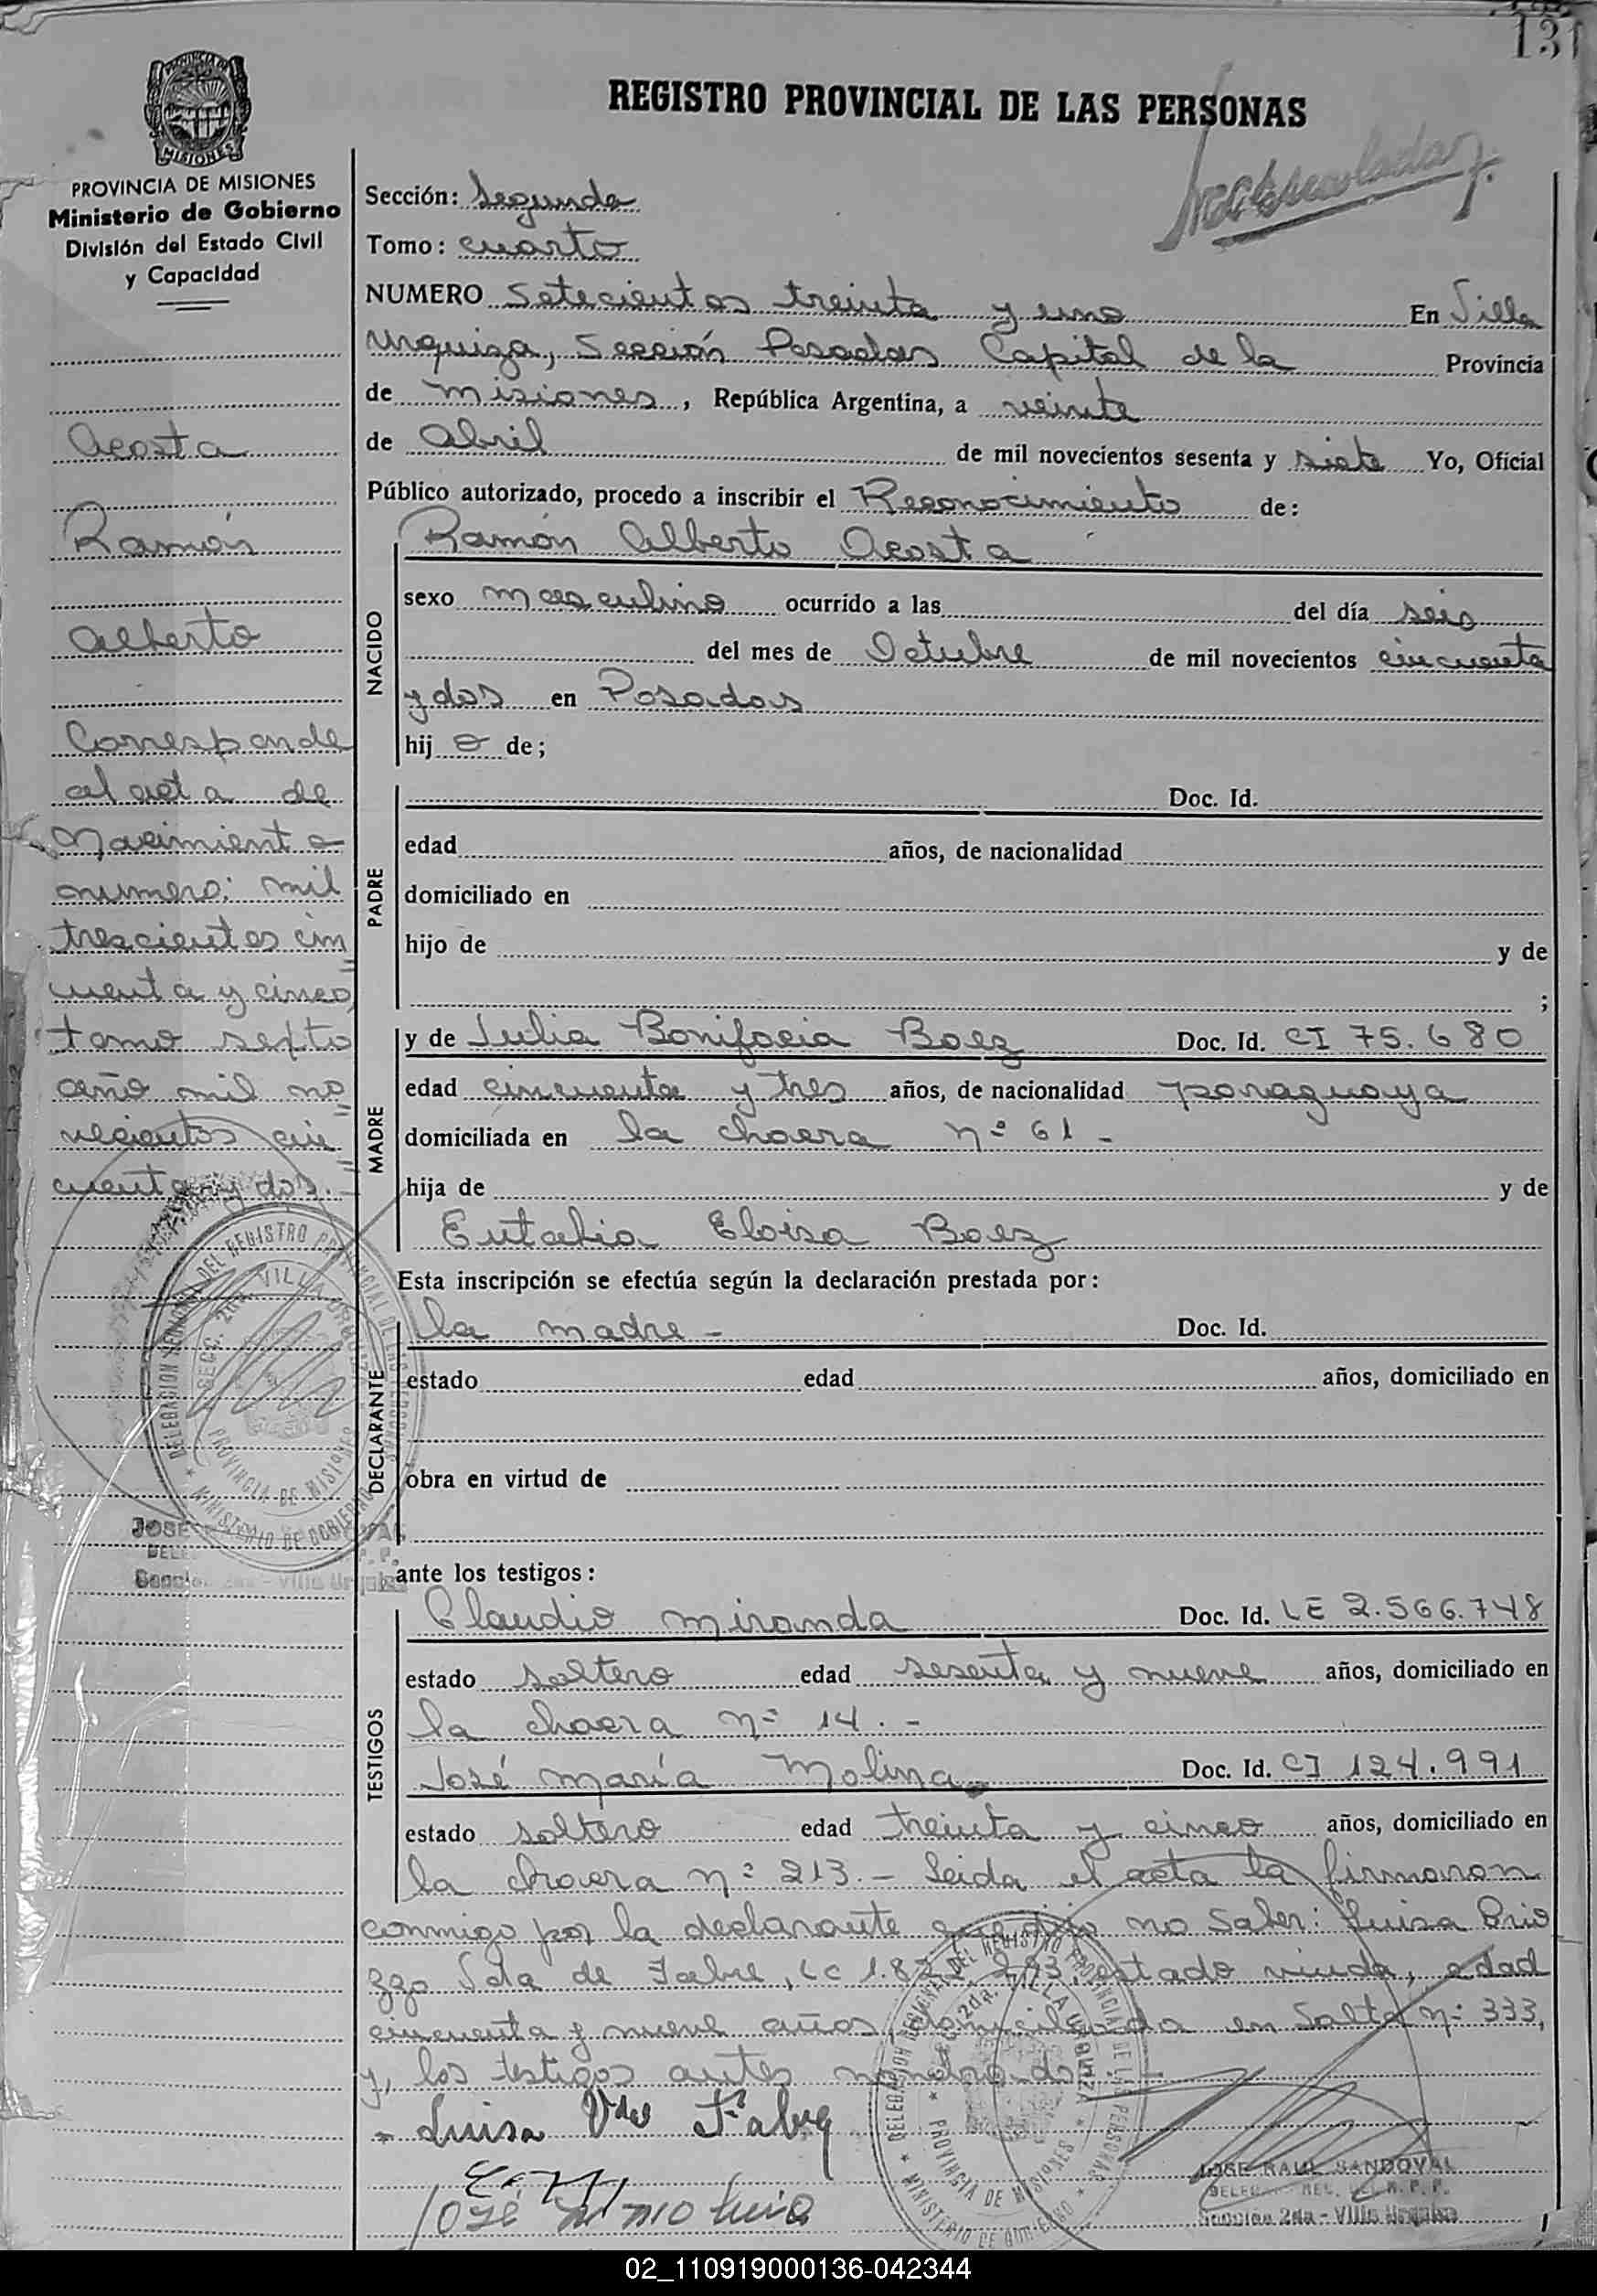 131
REGISTRO PROVINCIAL DE LAS PERSONAS
PROVINCIA DE MISIONES
Ministerio de Gobierno
División del Estado Civil
y Capacidad
Acosta
Ramón
Alberto
Corresponde
al acta de
Nacimiento
numero: mil
trescientos cin
cuenta y cinco,
tomo sexto
año mil no
vecientos cin
cuenta y dos.-
Sección: Segunda
Tomo: cuarto
NUMERO Setecientos treinta y uno En Villa
Urquiza, Sección Posadas Capital de la Provincia
de Misiones, República Argentina, a veinte
de Abril de mil novecientos sesenta y siete Yo, Oficial
Público autorizado, procedo a inscribir el Reconocimiento de:
NACIDO
Ramón Alberto Acosta
sexo masculino ocurrido a las del día seis
del mes de Octubre de mil novecientos cincuenta
y dos en Posadas
hij o de;
PADRE
Doc. Id.
edad años, de nacionalidad
domiciliado en
hijo de y de
;
MADRE
y de Julia Bonifacia Baez Doc. Id. CI 75.680
edad cincuenta y tres años, de nacionalidad paraguaya
domiciliada en la chacra nº 61 -
hija de y de
Eutalia Eloisa Baez
Esta inscripción se efectúa según la declaración prestada por:
DECLARANTE
la madre - Doc. Id.
estado edad años, domiciliado en
obra en virtud de
ante los testigos:
TESTIGOS
Claudio Miranda Doc. Id. LE 2.566.748
estado soltero edad sesenta y nueve años, domiciliado en
la chacra nº 14. -
José María Molina Doc. Id. CI 124.991
estado soltero edad treinta y cinco años, domiciliado en
la chacra nº 213. - Leida el acta la firmaron
conmigo por la declarante que dijo no saber: Luisa Brio
zzo Vda de Fabre, LC estado viuda, edad
cincuenta y nueve años, domiciliada en Salta nº 333,
y, los testigos antes nombrados. -
Luisa Vda
DELEGACION REGIONAL DEL REGISTRO PROVINCIAL DE LAS PERSONAS
SECC. 2da. VILLA URQUIZA
PROVINCIA DE MISIONES
MINISTERIO DE GOBIERNO
JOSE RAUL SANDOVAL
Sección 2da - Villa Urquiza
02_110919000136-042344